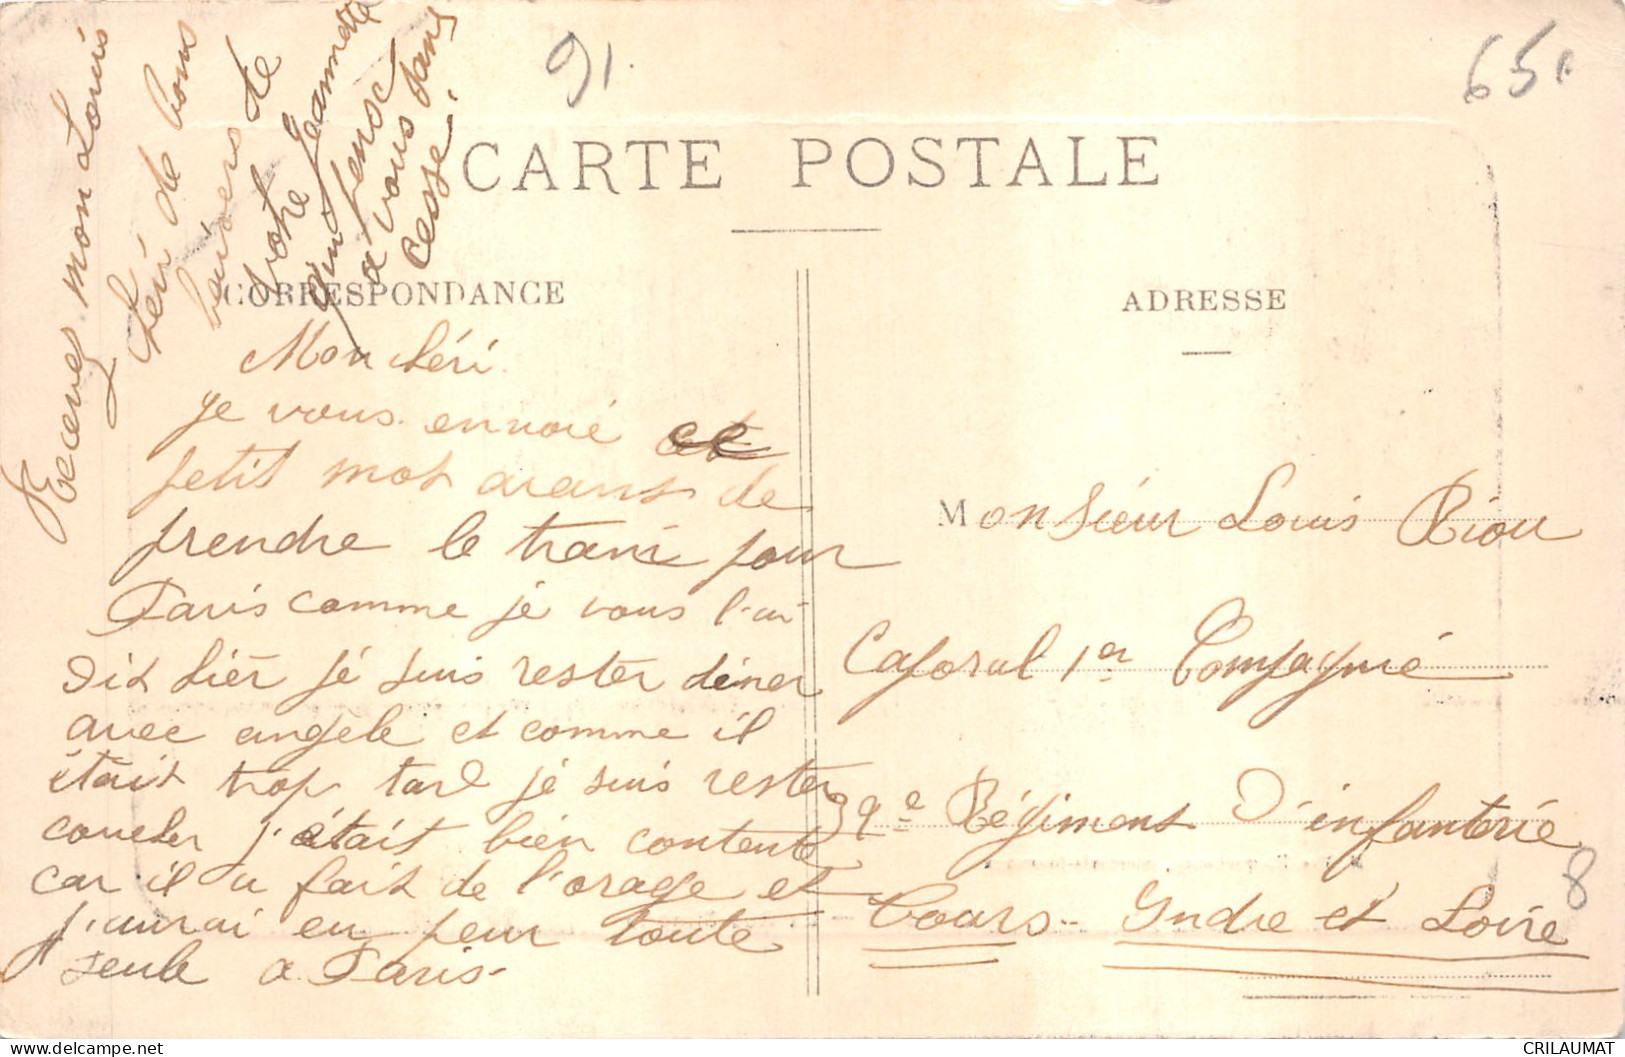 91.
65
CARTE POSTALE
CORRESPONDANCE
ADRESSE
Mon chéri
je vous envoié ce
petit mot avant de
prendre le train pour
Paris comme je vous l'ai
dit hier je suis rester diner
avec angele et comme il
était trop tard je suis rester
coucher j'était bien contente
car il a fait de l'orage et
j'aurai eu peur toute
seule a Paris-
Recevez mon Louis
chéri de bons
baisers de
votre Jeannette
qui pense
a vous sans
cesse.
Monsieur Louis Riou
Caporal 1er Compagnié
39e Régiment D'infanterie
Tours- Indre et Loire
8
CRILAUMAT